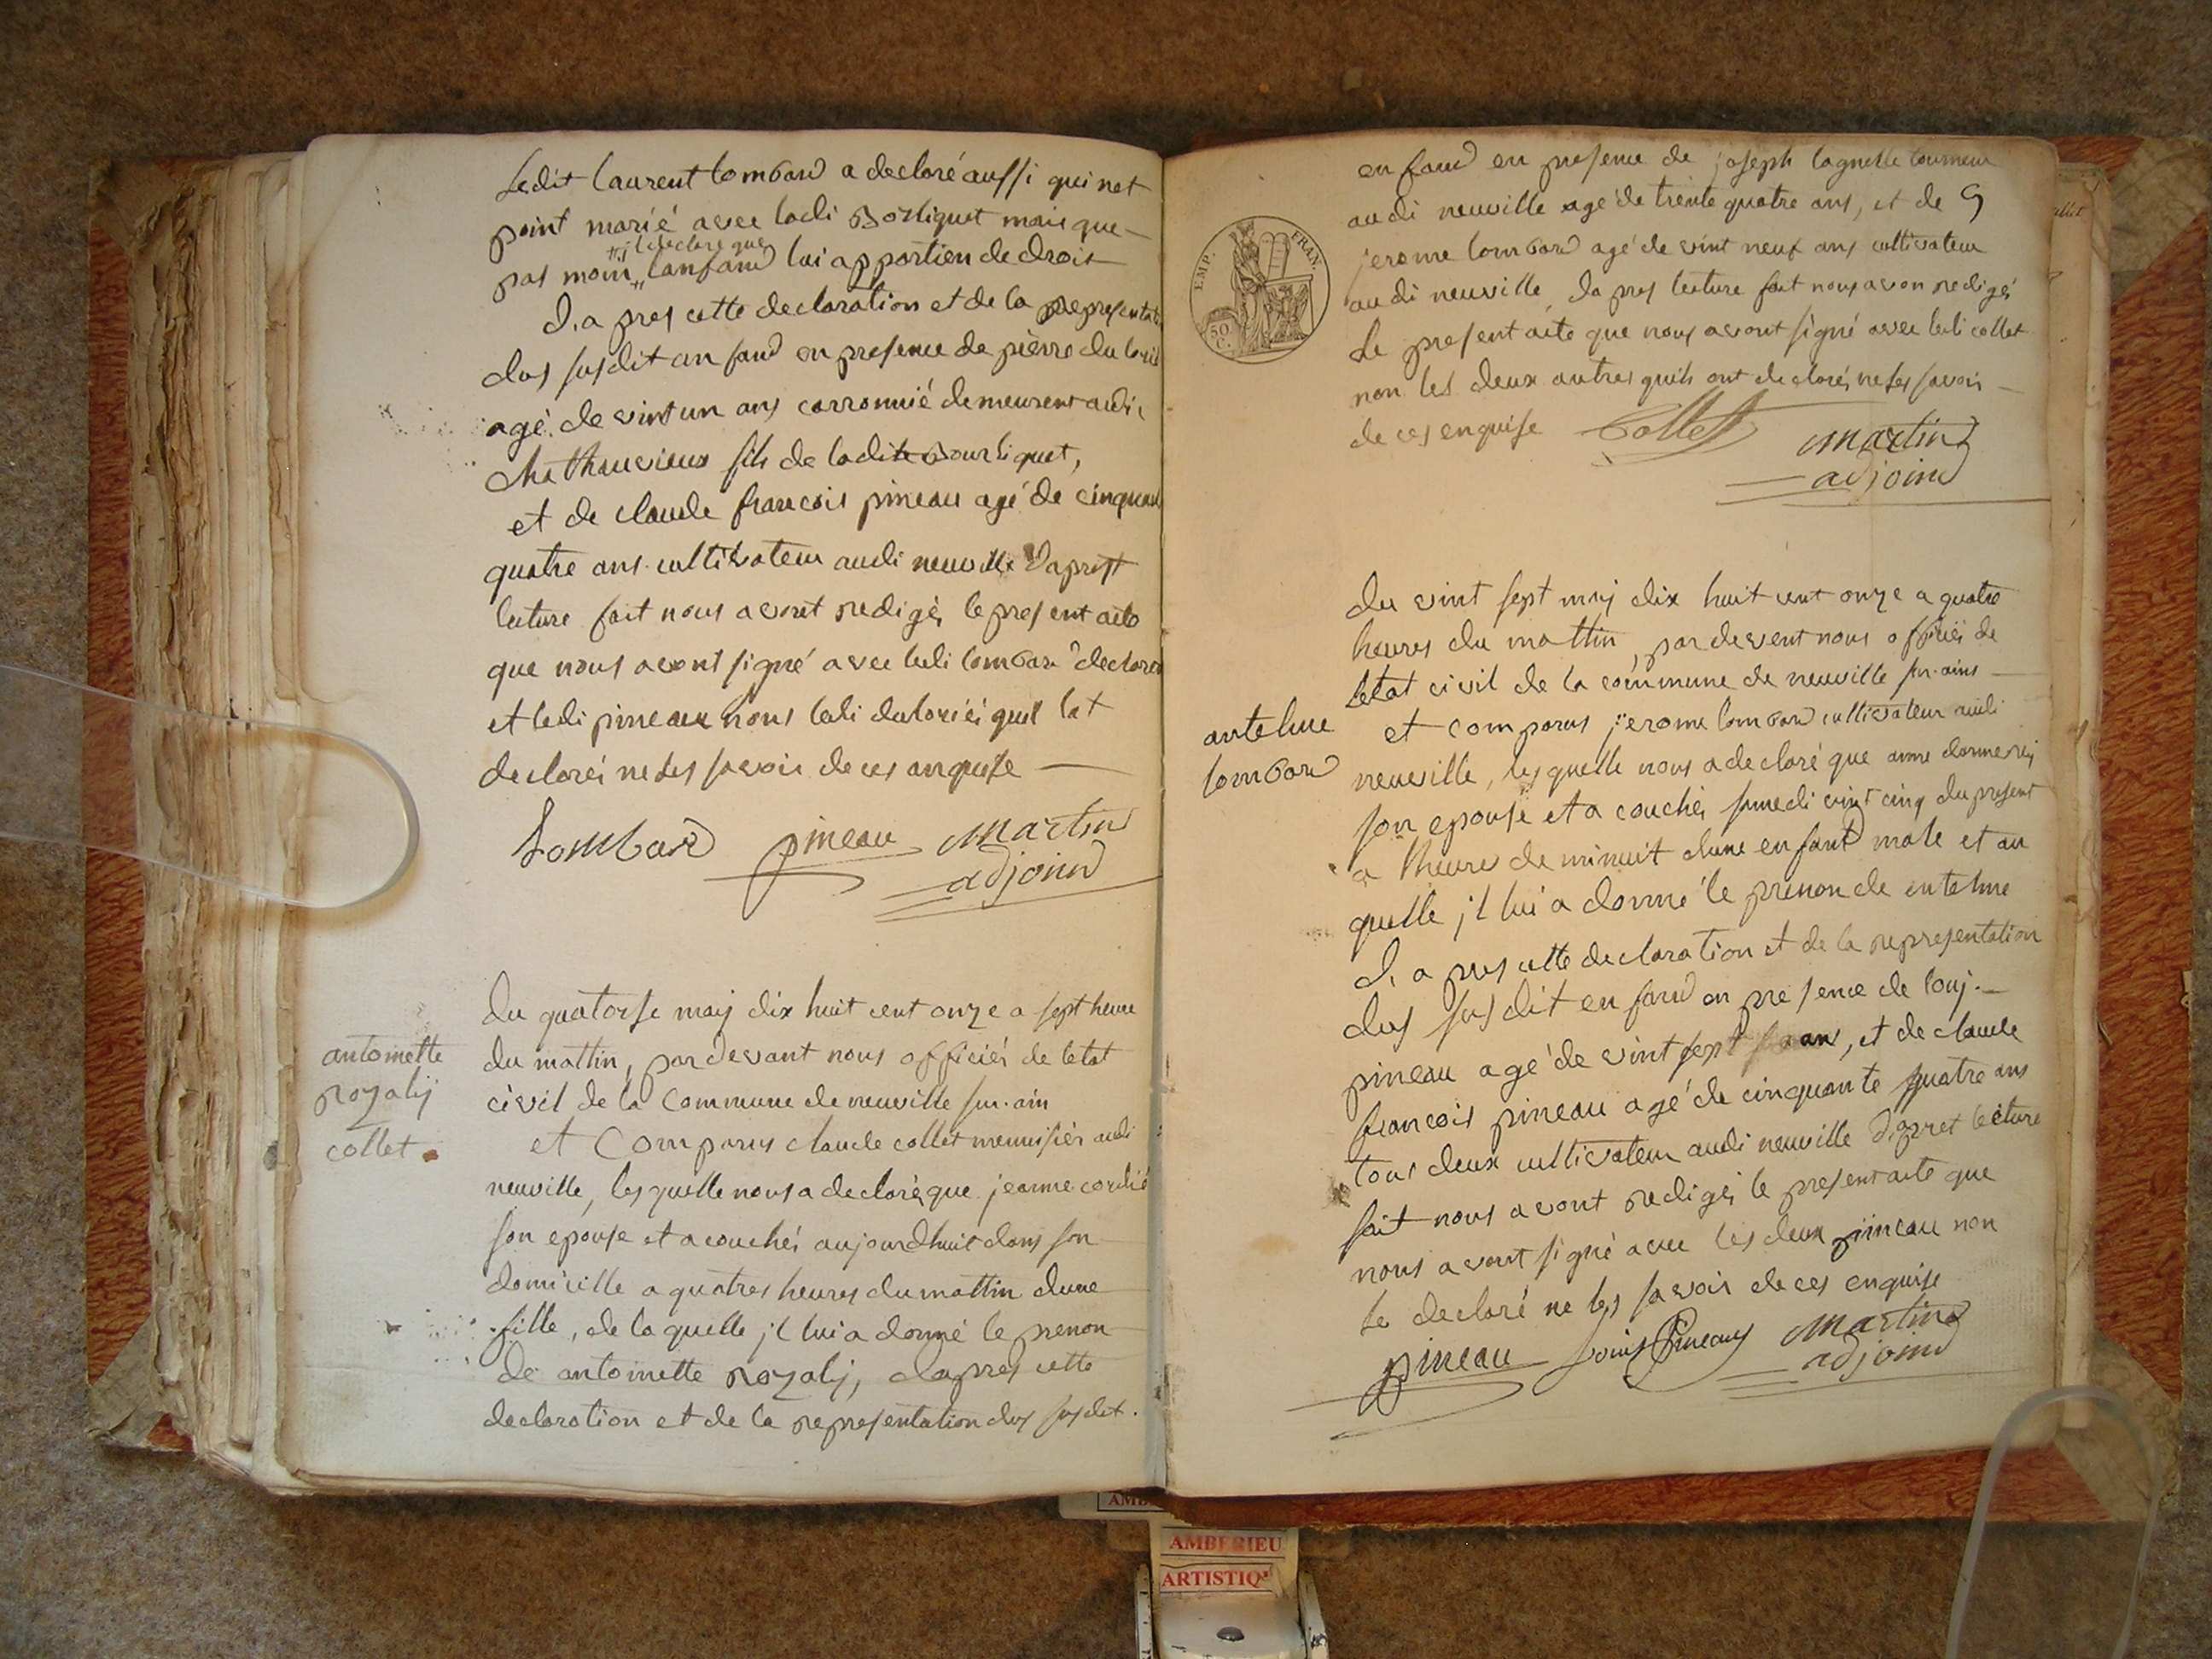 Ledit laurent lombard a declaré aussi qui net
point marié avec ladi Bourliquet mais que
il declare que
pas moin lanfand lui apportien de droit
d. a pres cette declaration et de la representati
dus susdit anfand en presence de pierre du
agé de vint un ans corronnié demeurent audi
Chathauvieux fils de ladite Bourliquet,
et de claude francois pineau agé de cinquan
quatre ans cultivateur audi neuville Daprest
lecture fait nous avont redigés le present acte
que nous avont signé avec ledi lombar declares
et ledi pineau nous ledi quil lat
declarés ne les savoir de ces anquise
Lombard pineau Martin
adjoind
antoinette
rozalÿ
collet
du quatorse maij dix huit cent onze a sept heure
du mattin, par devant nous officiés de letat
civil de la Commune de neuville sur.ain
et Comparus claude collet menuisiér audi
neuville, les quelle nous a declaré que jeanne cordié
son epouse et acouchés aujourdhuit dans son
domicille a quatres heures du mattin dune
fille, de la quelle jl lui a donné le prenon
de antoinette rozalij, dapres cette
declaration et de la representation dus susdit.
EMP. FRAN.
50 C.
en fand en presence de joseph lagnelle tourneur
audi neuville agé de trente quatre ans, et de
jerome lombard agé de vint neuf ans cultivateur
audi neuville da pres lecture fait nous avon redigés
Le present acte que nous avont signé avec ledi collet
non les deux autres quils ont declarés ne les savoir
de ces enquise Collet Martin
adjoind
antelme
lombard
du vint sept maij dix huit cent onze a quatre
heures du mattin, par devent nous officiés de
letat civil de la commune de neuville sur.ains
et comparus jerome lombard cultivateur audi
neuville, les quelle nous a declaré que anne
son epouse et a couchés samedi vint cinq du present
a lheure de minuit dune enfant male et au
quelle jl lui a donné le prenon de entelme
d. a pres cette declaration et de la representation
dus susdit en fand en presence de louj.
pineau agé de vint sept ans, et de claude
francois pineau agé de cinquante quatre ans
tous deux cultivateur audi neuville dapret lecture
fait nous avont redigés le present acte que
nous avont signé avec les deux pineau non
le declaré ne les savoir de ces enquise
pineau Louis Pineau Martin
adjoind
AMBERIEU
ARTISTIQ